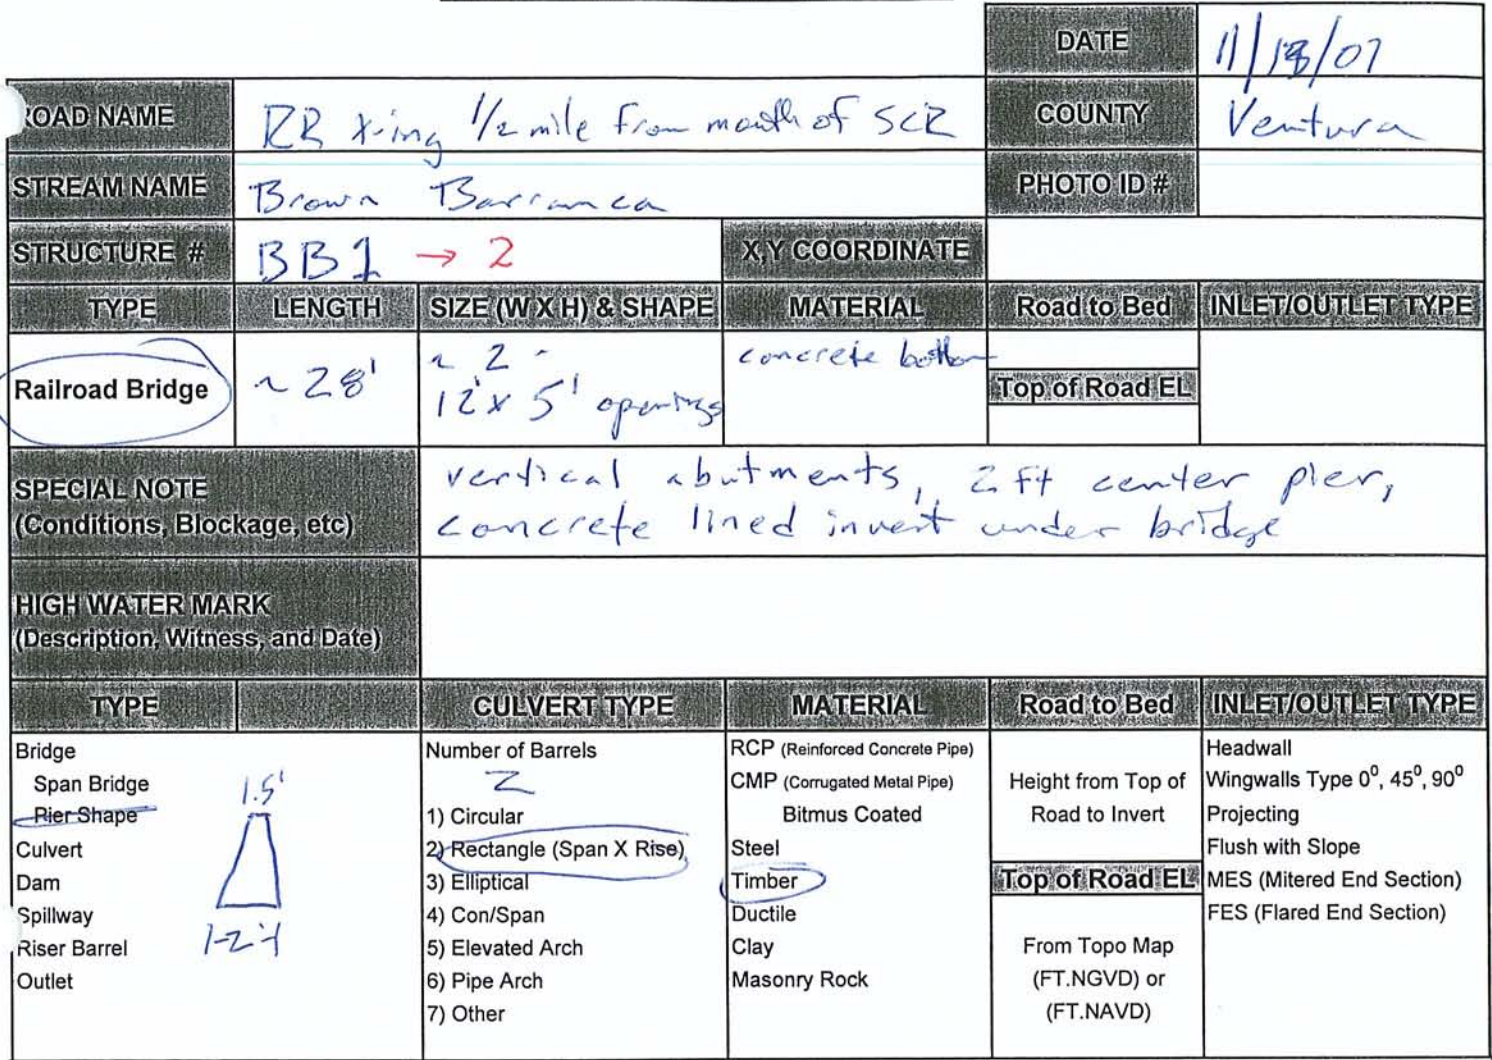 DATE 11/18/07
ROAD NAME RR X-ing 1/2 mile from mouth of SCR
COUNTY Ventura
STREAM NAME Brown Barranca
PHOTO ID #
STRUCTURE # BB1 → 2
X,Y COORDINATE
TYPE LENGTH SIZE (W X H) & SHAPE MATERIAL Road to Bed INLET/OUTLET TYPE
Railroad Bridge ~28' ~ 2 - concrete bottom
12' x 5' openings
Top of Road EL
SPECIAL NOTE
(Conditions, Blockage, etc)
vertical abutments, 2 ft center pier,
concrete lined invert under bridge
HIGH WATER MARK
(Description, Witness, and Date)
TYPE CULVERT TYPE MATERIAL Road to Bed INLET/OUTLET TYPE
Bridge
Span Bridge
Pier Shape
Culvert
Dam
Spillway
Riser Barrel
Outlet
1.5'
Number of Barrels
2
1) Circular
2) Rectangle (Span X Rise)
3) Elliptical
4) Con/Span
5) Elevated Arch
6) Pipe Arch
7) Other
RCP (Reinforced Concrete Pipe)
CMP (Corrugated Metal Pipe)
Bitmus Coated
Steel
Timber
Ductile
Clay
Masonry Rock
Height from Top of
Road to Invert
Top of Road EL
From Topo Map
(FT.NGVD) or
(FT.NAVD)
Headwall
Wingwalls Type 0⁰, 45⁰, 90⁰
Projecting
Flush with Slope
MES (Mitered End Section)
FES (Flared End Section)